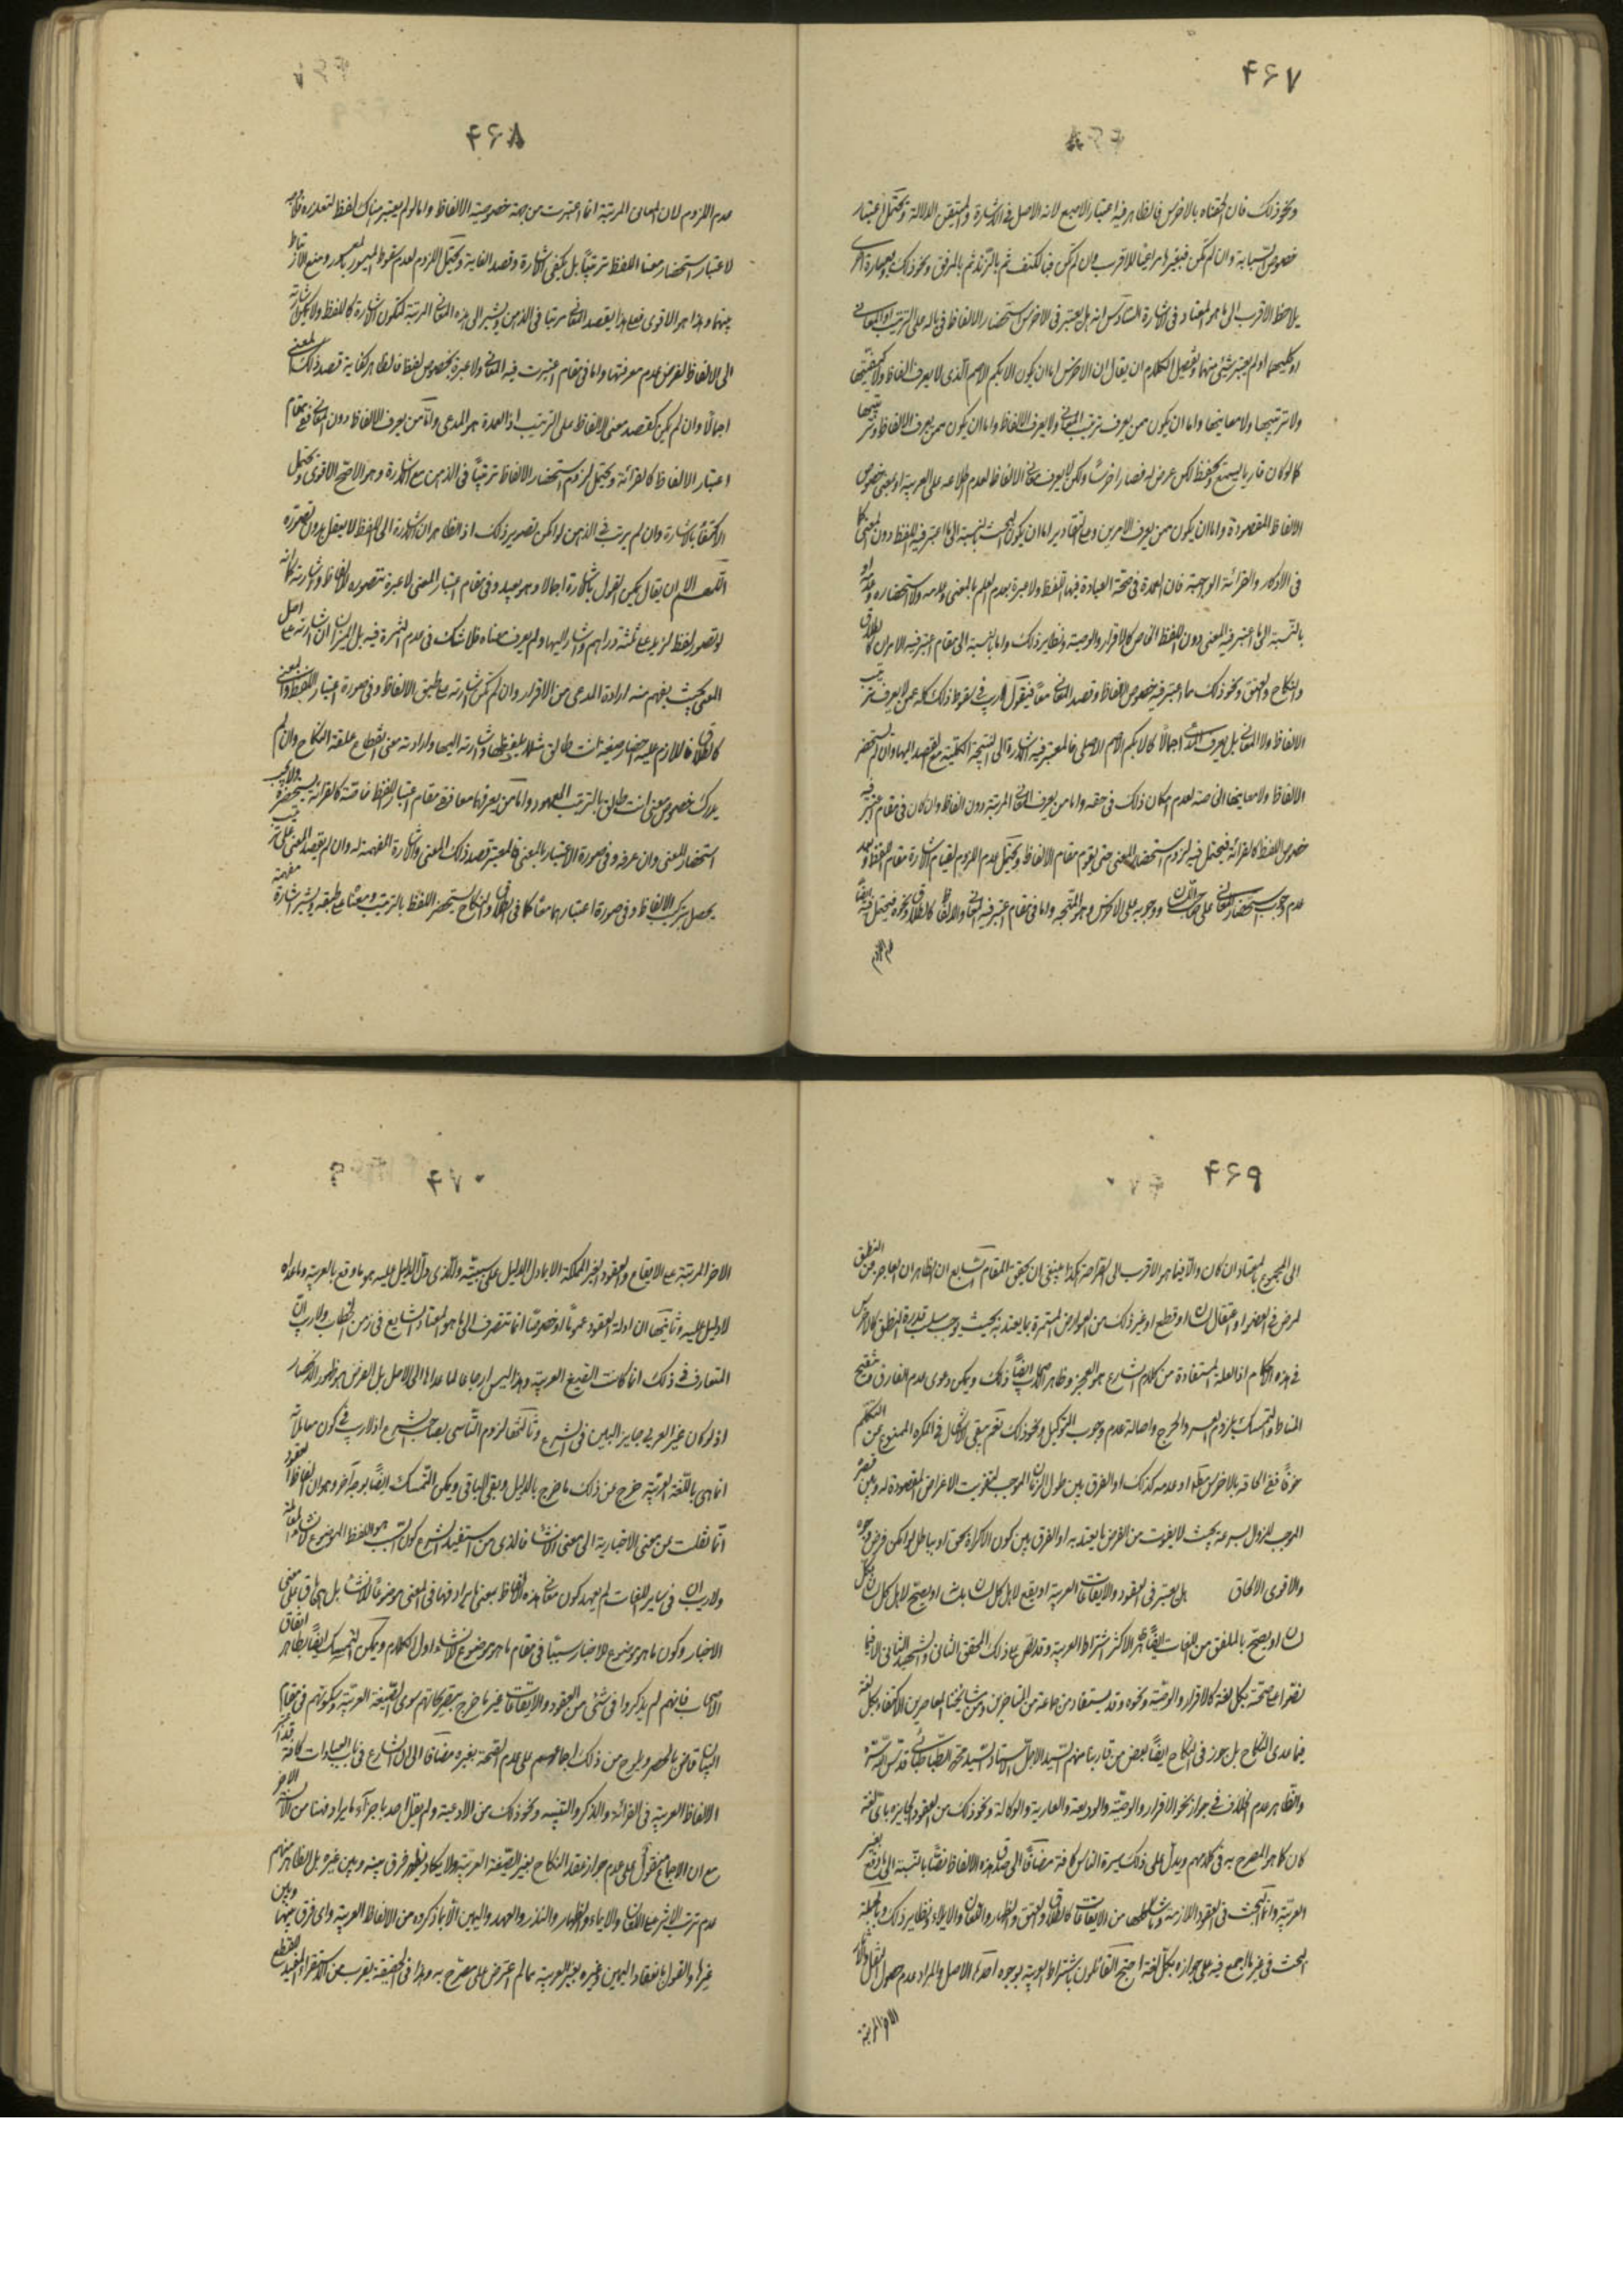 ۴۶۷
ونحو ذلك فان الحقناه بالاخرس فالظاهر فيه اعتبار الاصبع لانه الاصل في الاشارة والمتيقن الدلالة ويحتمل اعتبار
خصوص السبابة وان لم تكن فبغيرها مراعيا للاقرب وان لم تكن فبالكتف ثم بالزند ثم بالمرفق ونحو ذلك
يلاحظ الاقرب الى ما هو المعتاد في الاشارة السادس انه هل يعتبر في الاخرس استحضار الالفاظ في باله على الترتيب او المعاني
او كليهما او لم يعتبر شئ منهما وتفصيل الكلام ان يقال ان الاخرس اما ان يكون الابكم الاصم الذي لا يعرف الفاظا ولا كيفيتها
ولا ترتيبها ولا معانيها واما ان يكون ممن يعرف ترتيب المعاني ولا يعرف الالفاظ واما ان يكون ممن يعرف الالفاظ وترتيبها
كما لو كان قاريا يسمع ويحفظ لكن عرض له فصار اخرسا ولكن لا يعرف معاني الالفاظ لعدم اطلاعه على العربية او معنى خصوص
الالفاظ المقصودة واما ان يكون ممن يعرف الامرين ومع التقادير اما ان يكون البحث بالنسبة الى ما اعتبر فيه اللفظ دون المعنى كما
في الاذكار والقرائة الواجبة فان العمدة في صحة العبادة فيها التلفظ ولا عبرة بعدم العلم بالمعنى وعدمه ولا استحضاره وعدمه او
بالنسبة الى ما اعتبر فيه المعنى دون اللفظ الخاص كالاقرار والوصية ونظاير ذلك واما بالنسبة الى مقام اعتبر فيه الامران كالطلاق
والنكاح والعتق ونحو ذلك مما اعتبر فيه خصوص الالفاظ وقصد المعاني معا فنقول لا ريب في سقوط ذلك كله عمن لا يعرف ترتيب
الالفاظ ولا المعاني بل يعرف المدعى اجمالا كالابكم الاصم الاصلي فالمعتبر فيه الاشارة الى النتيجة الكلية مع القصد اليها وان لم يستحضر
الالفاظ ولا معانيها الخاصة لعدم امكان ذلك في حقه واما من يعرف المعاني المرتبة دون الفاظ وان كان في مقام اعتبر فيه
خصوص اللفظ كالقرائة فيحتمل فيه لزوم استحضار المعنى حتى يقوم مقام الالفاظ ويحتمل عدم اللزوم لقيام الاشارة مقام اللفظ وبعد
عدم وجوب استحضار المعاني على صاحب اللسان ووجوبه على الاخرس وهو المتجه واما في مقام اعتبر فيه المعاني والالفاظ كالطلاق ونحوه فيحتمل فيه ايضا
عدم اللزوم
۴۶۸
عدم اللزوم لان المعاني المرتبة انما اعتبرت من جهة خصوصية الالفاظ واما لو لم يعتبر هناك لفظ لتعذره فلا وجه
لاعتبار استحضار معنا اللفظ ترتيبا بل يكفي الاشارة وقصد الغاية ويحتمل اللزوم لعدم سقوط الميسور بالمعسور ومنع الارتباط
بينهما وهذا هو الاقوى فعلى هذا يقصد المعاني مرتبا في الذهن ويشير الى هذه المعاني المرتبة لتكون الاشارة كاللفظ ولا يكون اشارته
الى الالفاظ لفرض عدم معرفتها واما في مقام اعتبرت فيه المعاني ولا عبرة بخصوص لفظ فالظاهر كفاية قصد ذلك المعنى
اجمالا وان لم يكن كقصد معنى الالفاظ على الترتيب اذ العمدة هو المدعى واما من يعرف الالفاظ دون المعاني ففي مقام
اعتبار الالفاظ كالقرائة ويحتمل لزوم استحضار الالفاظ ترتيبا في الذهن مع الاشارة وهو الاصح الاقوى ويحتمل
الاكتفاء بالاشارة وان لم يرتب في الذهن لو امكن تصوير ذلك اذ الظاهر ان الاشارة الى اللفظ لا يعقل بدون تصوره
اللهم الا ان يقال يمكن القول بالاشارة اجمالا وهو بعيد وفي مقام اعتبار المعنى لا عبرة بتصوره الالفاظ واشارته فانه
لو تصور لفظ لزيد علي ثلثة دراهم واشار اليها ولم يعرف معناه فلا شك في عدم الثمرة فيه بل الميزان ان اشارته على اصل
المعنى بحيث يفهم منه ارادة المدعى من الاقرار وان لم تكن اشارته مع طبق الالفاظ وفي صورة اعتبار اللفظ والمعنى
كالطلاق فاللازم عليه احضار صيغة انت طالق مثلا بلفظها واشارته اليها وارادته معنى انقطاع علقة النكاح وان لم
يدرك خصوص معنى انت طالق بالترتيب المعهود واما من يعرفهما معا ففي مقام اعتبار اللفظ خاصة كالقرائة يستحضره ولا يجب
استحضار المعنى وان عرفه وفي صورة الاعتبار بالمعنى فالمعتبر قصد ذلك المعنى والاشارة المفهمة له وان لم يقصد المعنى على ترتيب
يحصل بتركيب الالفاظ وفي صورة اعتبارهما معا كما في الطلاق والنكاح يستحضر اللفظ بالترتيب ومعناه على طبقه ويشير اشارة مفهمة
۴۶۹
الى المجموع بالمعتاد ان كان والا فبما هو الاقرب الى الصراحة هكذا ينبغي ان يحقق المقام السابع ان الظاهر ان العاجز عن النطق
لمرض في العضو او اعتقال لسان او قطع او غير ذلك من العوارض المستمرة بما يعتد به بحيث يوجب سلب قدرة النطق كالاخرس
في هذه الاحكام اذ العلة المستفادة من كلام الشارع هو العجز وظاهر الاصحاب ايضا ذلك ويمكن دعوى عدم الفارق وتنقيح
المناط والتمسك بلزوم العسر والحرج واصالة عدم وجوب التوكيل ونحو ذلك نعم يبقى الاشكال في المكره الممنوع عن التكلم
خوفا ففي الحاقه بالاخرس مطلقا او عدمه كذلك او الفرق بين طول الزمان الموجب لتفويت الاغراض المقصودة له وبين قصره
الموجب للزوال بسرعة بحيث لا يفوت من الغرض ما يعتد به او الفرق بين كون الاكراه بحق او بباطل لو امكن فرض وجوه
والاقوى الالحاق هل يعتبر في العقود والايقاعات العربية او يقع لاهل كل لسان بلسانه او يصح لاهل كل لسان بكل
لسان او يصح بالملفق من اللغات ايضا ظاهر الاكثر اشتراط العربية وقد نص على ذلك المحقق الثاني والشهيد الثاني الا فيما
نصوا على صحته بكل لغة كالاقرار والوصية ونحوه وقد يستفاد من جماعة من المتاخرين ومن مشايخنا المعاصرين الاكتفاء بكل لغة
فيما عدى النكاح بل جوز في النكاح ايضا بعض من قاربنا منهم السيد الاجل الاستاد السيد محمد الطباطبائي قدس سره
والظاهر عدم الخلاف في جواز نحو الاقرار والوصية والوديعة والعارية والوكالة ونحو ذلك من العقود الجايزة باي لغة
كان كما هو المصرح به في كلامهم ويدل على ذلك سيرة الناس كافة مضافا الى صدق هذه الالفاظ نصا بالنسبة الى ما وقع بغير
العربية وانما البحث في العقود اللازمة وما شاكلها من الايقاعات كالطلاق والعتق والظهار واللعان والايلاء ونظاير ذلك وبالجملة
البحث في غير ما اجمع فيه على جوازه بكل لغة احتج القائلون باشتراط العربية بوجوه احدها الاصل والمراد عدم حصول النقل والآثار
الاخر المرتبة
۴۷۰
الاخر المرتبة على الايقاع والعقود الغير المملكة الا بما دل الدليل على سببيته والذي دل الدليل عليه هو ما وقع بالعربية وما عداه
لا دليل عليه وثانيها ان ادلة العقود عموما او خصوصا انما تنصرف الى ما هو المعتاد الشايع في زمن الخطاب ولا ريب ان
المتعارف في ذلك انما كانت الصيغ العربية وهذا ليس ارجاعا لما عداها الى الاصل بل الغرض هو ظهور الانحصار
اذ لو كان غير العربي جايزا لبين في الشرع وثالثها لزوم التاسي بصاحب الشرع اذ لا ريب في كون معاملاته
انما هي باللغة العربية خرج عن ذلك ما خرج بالدليل وبقي الباقي ويمكن التمسك ايضا بوجه آخر وهو ان الفاظ العقود
انما نقلت من معنى الاخبارية الى معنى الانشاء فالذي من استفيد الشرع كون السبب هو اللفظ الموضوع لانشاء المعاملة
ولا ريب ان في ساير اللغات لم يعهد كون معاني هذه الالفاظ بمعنى ما يرادفها في المعنى موضوعا للانشاء بل هي باق على معنى
الاخبار وكون ما هو موضوع للاخبار سببا في مقام ما هو موضوع للانشاء اول الكلام ويمكن التمسك ايضا بظاهر اتفاق
الاصحاب فانهم لم يذكروا في شئ من العقود والايقاعات غير ما خرج بتصريحاتهم سوى الصيغة العربية وسكوتهم في مقام
البيان قاض بالحصر ويلوح من ذلك اجماعهم على عدم الصحة بغيره مضافا الى ان الشارع في باب العبادات كافة قد اعتبر
الالفاظ العربية في القرائة والذكر والتلبية ونحو ذلك من الادعية ولم يقل احد باجزاء ما يرادفها من الالسنة الاخر
مع ان الاجماع منقول على عدم جواز عقد النكاح بغير الصيغة العربية ولا يكاد يظهر فرق بينه وبين غيره بل الظاهر منهم
عدم ترتب الاثر على اللعان والايلاء والظهار والنذر والعهد واليمين الا بما ذكروه من الالفاظ العربية واي فرق بينها وبين
غيرها والقول بانعقاد اليمين وغيره بغير العربية مما لم اعثر على مصرح به وهذا في الحقيقة يقرب من الاستقراء المفيد للقطع